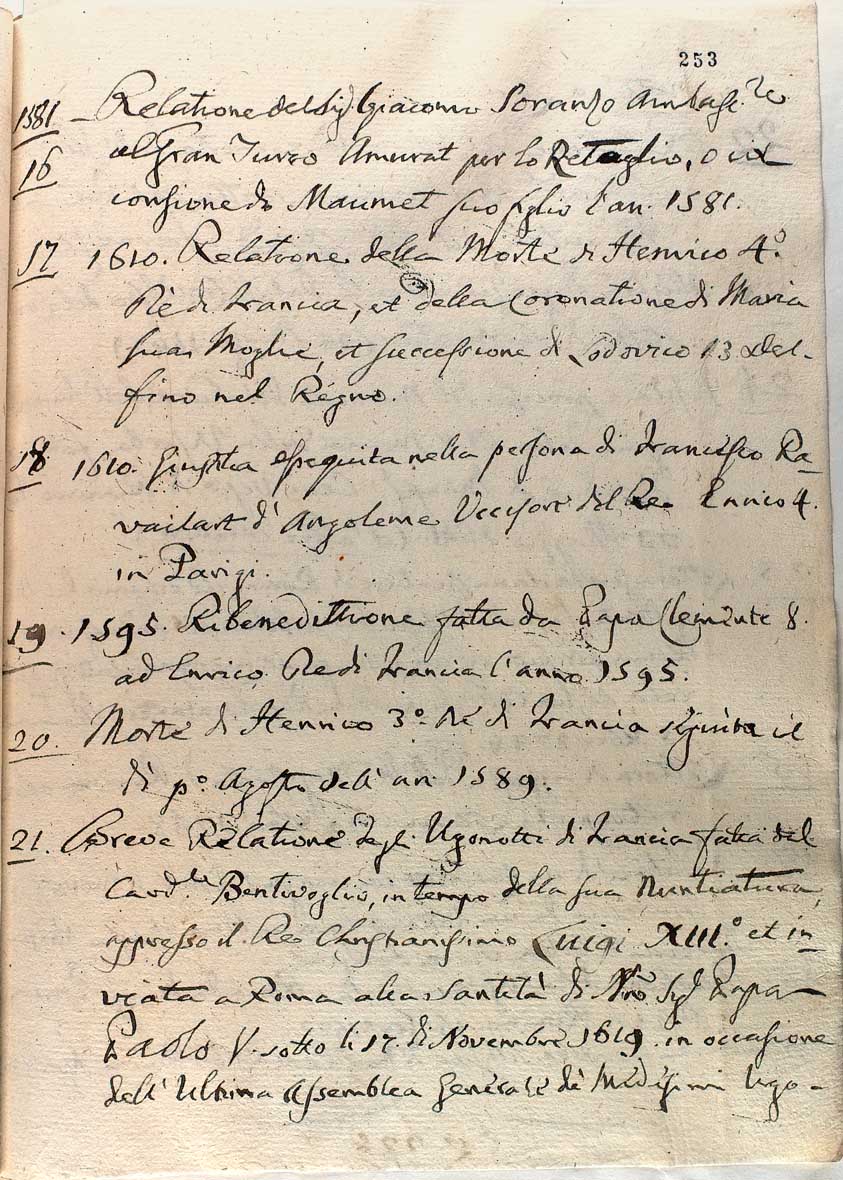 253
1581 – Relatione del Sig.r Giacomo Soranzo Ambasc.re
16 al Gran Turco Amurat per lo Retaglio, o cir
concisione di Maumet suo figlio l'an. 1581.
17 1610. Relatione della Morte di Henrico 4.º
Rè di Francia, et della Coronatione di Maria
sua Moglie, et successione di Lodovico 13 Del-
fino nel Regno.
18 1610. Giustitia esseguita nella persona di Francesco Ra-
vaillart d'Angoleme Uccisore del Re Enrico 4.
in Parigi.
19. 1595. Ribenedittione fatta da Papa Clemente 8.
ad Enrico Re di Francia l'anno 1595.
20. Morte di Henrico 3º. Rè di Francia seguita il
dì pº. Agosto dell'an 1589.
21. Breve Relatione degli Ugonotti di Francia fatta dal
Card.le Bentivoglio, in tempo della sua Nuntiatura,
appresso il Re Christianissimo Luigi XIII.º et in-
viata a Roma alla Santità di Nro Sig.r Papa
Paolo V. sotto li 17. di Novembre 1619. in occasione
dell'Ultima Assemblea Generale dè Medesimi Ugo-